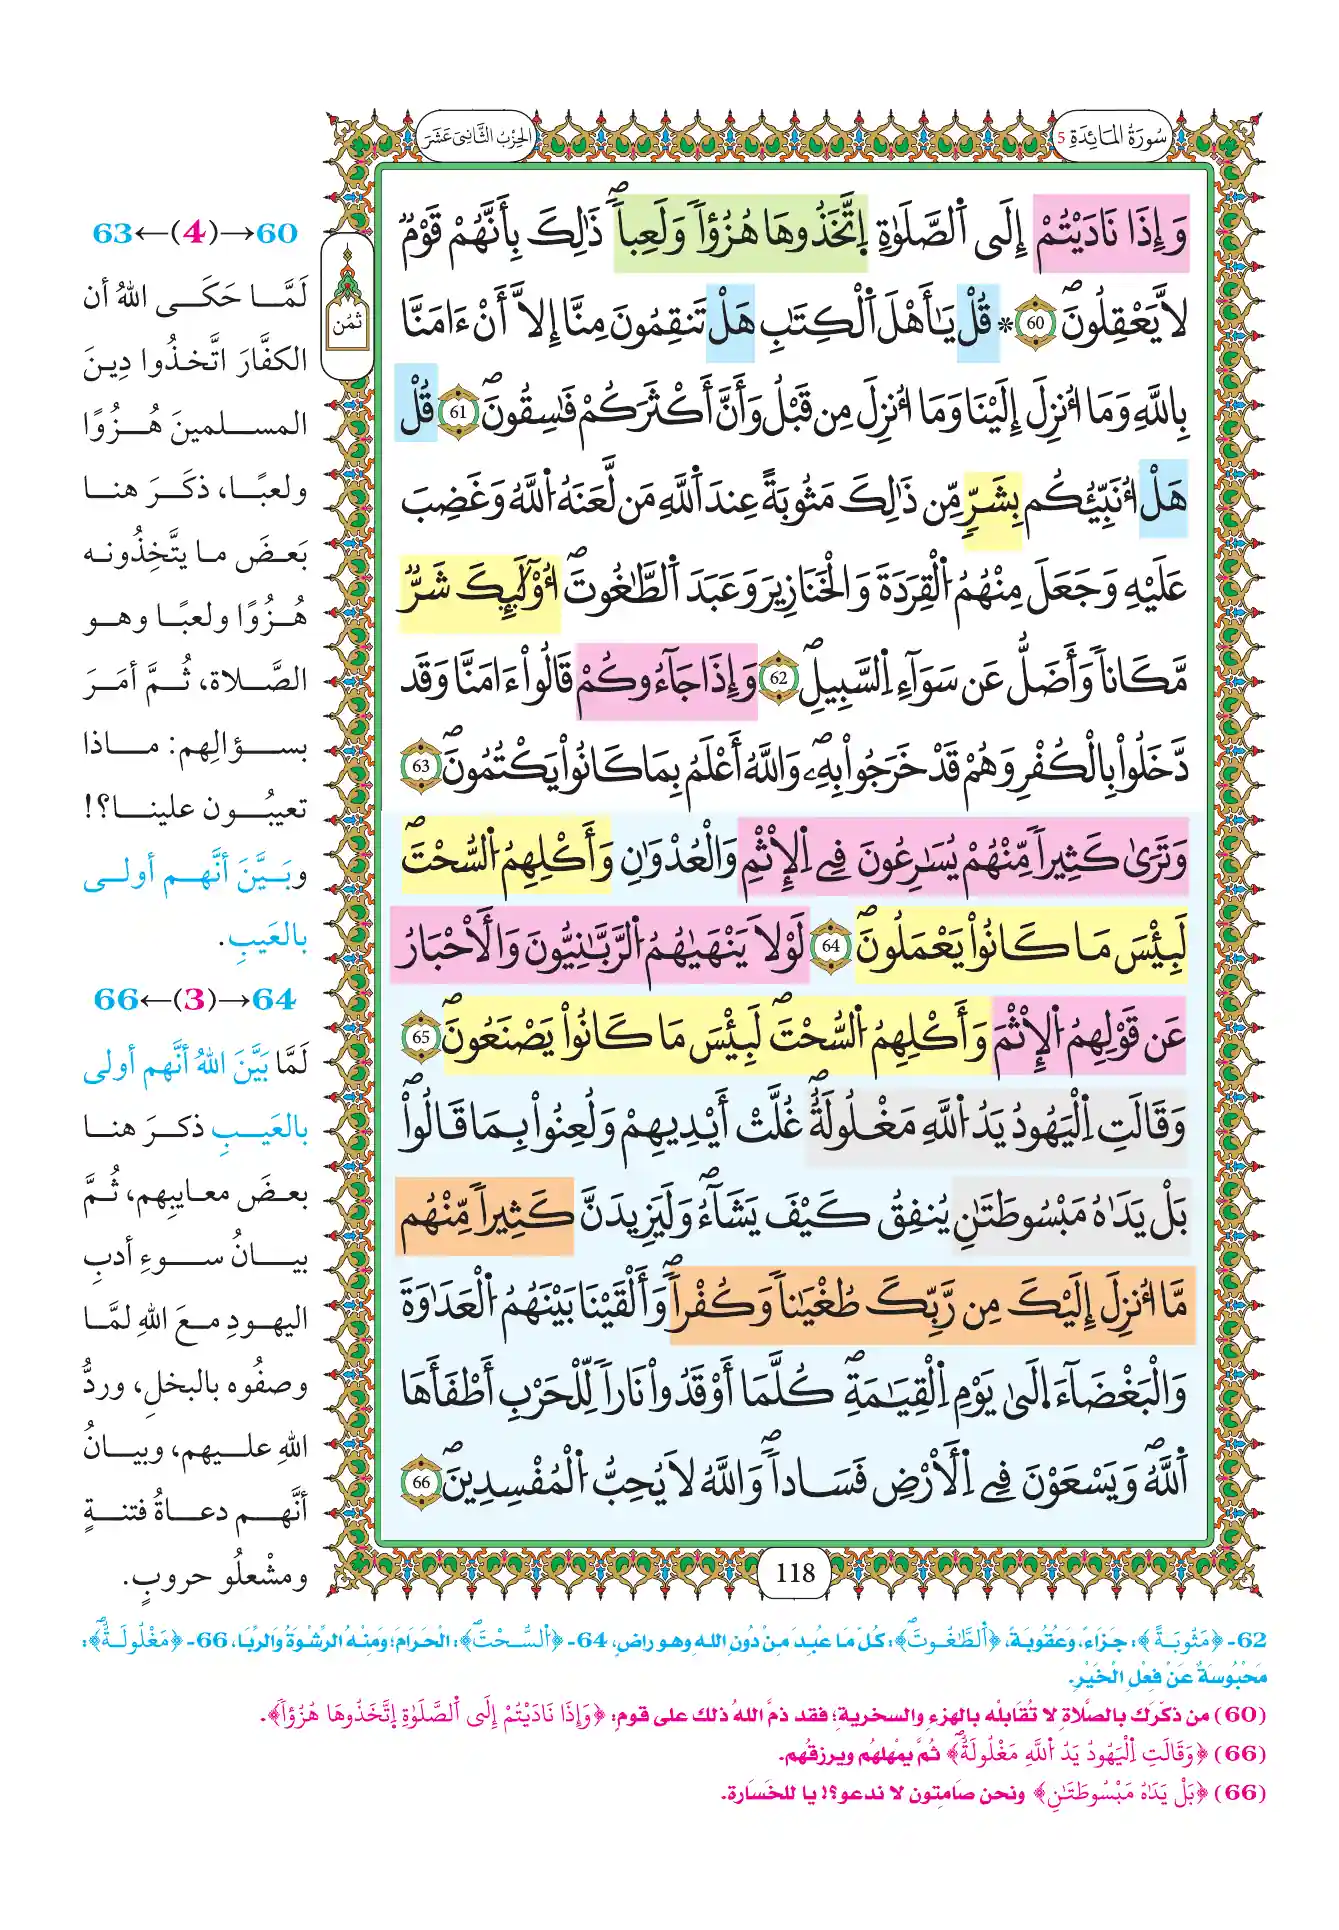 سُورَةُ المَائِدَةِ 5
الحِزْبُ الثَّانِي عَشَرَ
وَإِذَا نَادَيْتُمْ إِلَى اَ۬لصَّلَوٰةِ اِ۪تَّخَذُوهَا هُزُؤاٗ وَلَعِباٗۖ ذَٰلِكَ بِأَنَّهُمْ قَوْمٞ
لَّا يَعْقِلُونَۖ 60 * قُلْ يَٰأَهْلَ اَ۬لْكِتَٰبِ هَلْ تَنقِمُونَ مِنَّا إِلَّا أَنْ ءَامَنَّا
بِاللَّهِ وَمَا أُنزِلَ إِلَيْنَا وَمَا أُنزِلَ مِن قَبْلُ وَأَنَّ أَكْثَرَكُمْ فَٰسِقُونَۖ 61 قُلْ
هَلْ أُنَبِّئُكُم بِشَرّٖ مِّن ذَٰلِكَ مَثُوبَةً عِندَ اَ۬للَّهِ مَن لَّعَنَهُ اُ۬للَّهُ وَغَضِبَ
عَلَيْهِ وَجَعَلَ مِنْهُمُ اُ۬لْقِرَدَةَ وَالْخَنَازِيرَ وَعَبَدَ اَ۬لطَّٰغُوتَۖ أُوْلَٰٓئِكَ شَرّٞ
مَّكَاناٗ وَأَضَلُّ عَن سَوَآءِ اِ۬لسَّبِيلِۖ 62 وَإِذَا جَآءُوكُمْ قَالُوٓاْ ءَامَنَّا وَقَد
دَّخَلُواْ بِالْكُفْرِ وَهُمْ قَدْ خَرَجُواْ بِهِۦۖ وَاللَّهُ أَعْلَمُ بِمَا كَانُواْ يَكْتُمُونَۖ 63
وَتَرَىٰ كَثِيراٗ مِّنْهُمْ يُسَٰرِعُونَ فِے اِ۬لْإِثْمِ وَالْعُدْوَٰنِ وَأَكْلِهِمُ اُ۬لسُّحْتَۖ
لَبِئْسَ مَا كَانُواْ يَعْمَلُونَۖ 64 لَوْلَا يَنْهَيٰهُمُ اُ۬لرَّبَّٰنِيُّونَ وَالْأَحْبَارُ
عَن قَوْلِهِمُ اُ۬لْإِثْمَ وَأَكْلِهِمُ اُ۬لسُّحْتَۖ لَبِئْسَ مَا كَانُواْ يَصْنَعُونَۖ 65
وَقَالَتِ اِ۬لْيَهُودُ يَدُ اُ۬للَّهِ مَغْلُولَةٌۖ غُلَّتْ أَيْدِيهِمْ وَلُعِنُواْ بِمَا قَالُواْۖ
بَلْ يَدَٰهُ مَبْسُوطَتَٰنِ يُنفِقُ كَيْفَ يَشَآءُۖ وَلَيَزِيدَنَّ كَثِيراٗ مِّنْهُم
مَّا أُنزِلَ إِلَيْكَ مِن رَّبِّكَ طُغْيَٰناٗ وَكُفْراٗۖ وَأَلْقَيْنَا بَيْنَهُمُ اُ۬لْعَدَٰوَةَ
وَالْبَغْضَآءَ إِلَىٰ يَوْمِ اِ۬لْقِيَٰمَةِۖ كُلَّمَا أَوْقَدُواْ نَاراٗ لِّلْحَرْبِ أَطْفَأَهَا
اَ۬للَّهُۖ وَيَسْعَوْنَ فِے اِ۬لْأَرْضِ فَسَاداٗۖ وَاللَّهُ لَا يُحِبُّ اُ۬لْمُفْسِدِينَۖ 66
118
ثُمُن
60→(4)←63
لَمَّا حَكَى اللهُ أن
الكفَّارَ اتَّخذُوا دِينَ
المسلمينَ هُزُوًا
ولعبًا، ذكَرَ هنا
بَعضَ ما يتَّخِذُونه
هُزُوًا ولعبًا وهو
الصَّلاة، ثُمَّ أمَرَ
بسؤالِهم: ماذا
تعيبُون علينا؟!
وبَيَّنَ أنَّهم أولى
بالعَيبِ.
64→(3)←66
لَمَّا بَيَّنَ اللهُ أنَّهم أولى
بالعَيبِ ذكرَ هنا
بعضَ معايبِهم، ثُمَّ
بيانُ سوءِ أدبِ
اليهودِ معَ اللهِ لمَّا
وصفُوه بالبخلِ، وردُّ
اللهِ عليهم، وبيانُ
أنَّهم دعاةُ فتنةٍ
ومشْعلُو حروبٍ.
62- ﴿مَثُوبَةً﴾: جَزَاءً، وَعُقُوبَةً، ﴿اَ۬لطَّٰغُوتَۖ﴾: كُلَّ مَا عُبِدَ مِنْ دُونِ اللهِ وهو راضٍ، 64- ﴿اُ۬لسُّحْتَۖ﴾: الْحَرَامَ؛ وَمِنْهُ الرِّشْوَةُ وَالرِّبَا، 66- ﴿مَغْلُولَةٌۖ﴾:
مَحْبُوسَةٌ عَنْ فِعْلِ الْخَيْرِ.
(60) من ذكّرَك بالصَّلاةِ لا تُقَابلْه بالهزءِ والسخرية؛ فقد ذمَّ اللهُ ذلك على قومٍ: ﴿وَإِذَا نَادَيْتُمْ إِلَى اَ۬لصَّلَوٰةِ اِ۪تَّخَذُوهَا هُزُؤاٗ﴾.
(66) ﴿وَقَالَتِ اِ۬لْيَهُودُ يَدُ اُ۬للَّهِ مَغْلُولَةٌۖ﴾ ثُمَّ يمْهلهُم ويرزقُهم.
(66) ﴿بَلْ يَدَٰهُ مَبْسُوطَتَٰنِ﴾ ونحن صَامتون لا ندعو؟! يا للخَسَارة.